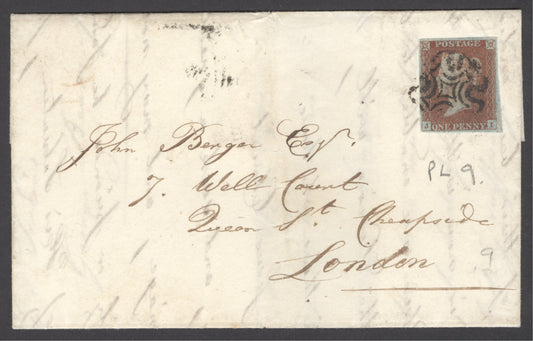 POSTAGE
ONE PENNY
John Berger Esqr.
7. Well Court
Queen St. Cheapside
London
PL 9.
9